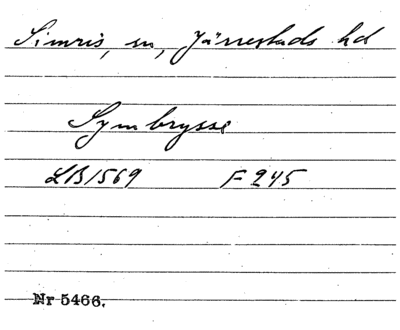 Simris, sn, Järrestads hd
Symbrysse
LB1569 F 245
Nr 5466.